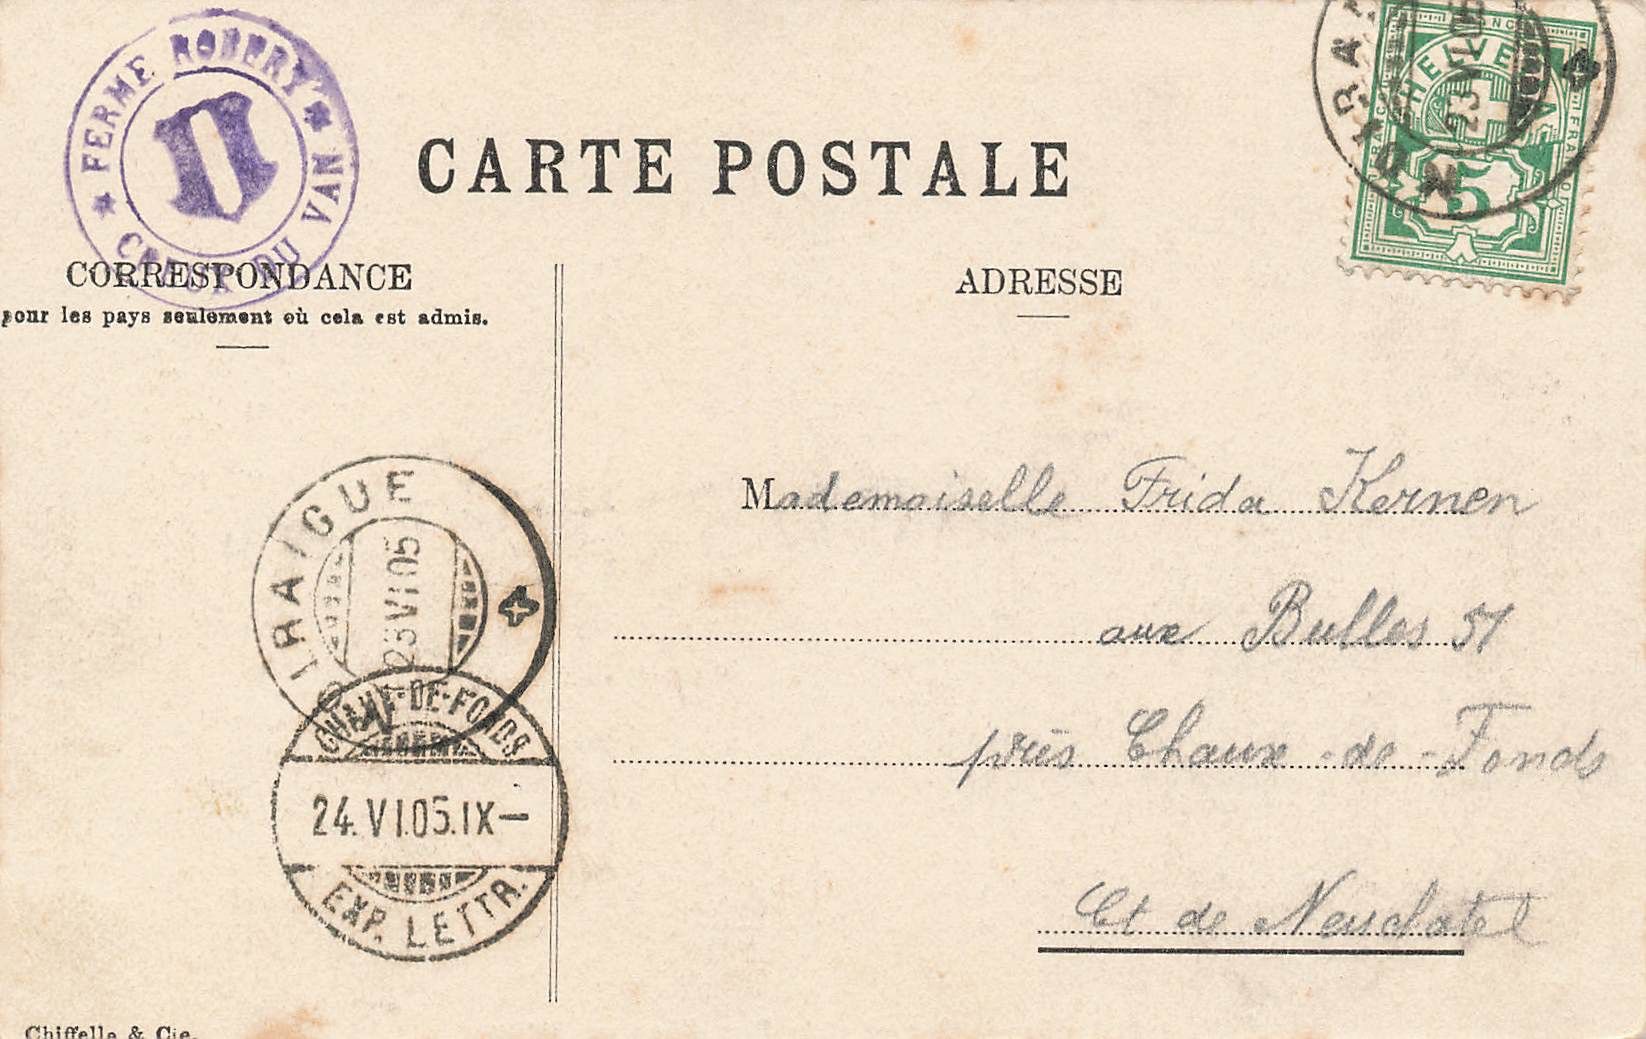 FERME ROBERT
CREUX DU VAN
CARTE POSTALE
CORRESPONDANCE
pour les pays seulement où cela est admis.
ADRESSE
HELVETIA
5
23 VI 05
NOIRAIGUE
23 VI 05
CHAUX-DE-FONDS
24. VI.05. IX–
EXP. LETTR.
Mademoiselle Frida Kernen
aux Bulles 51
près Chaux-de-Fonds
Ct de Neuchatel
Chiffelle & Cie.